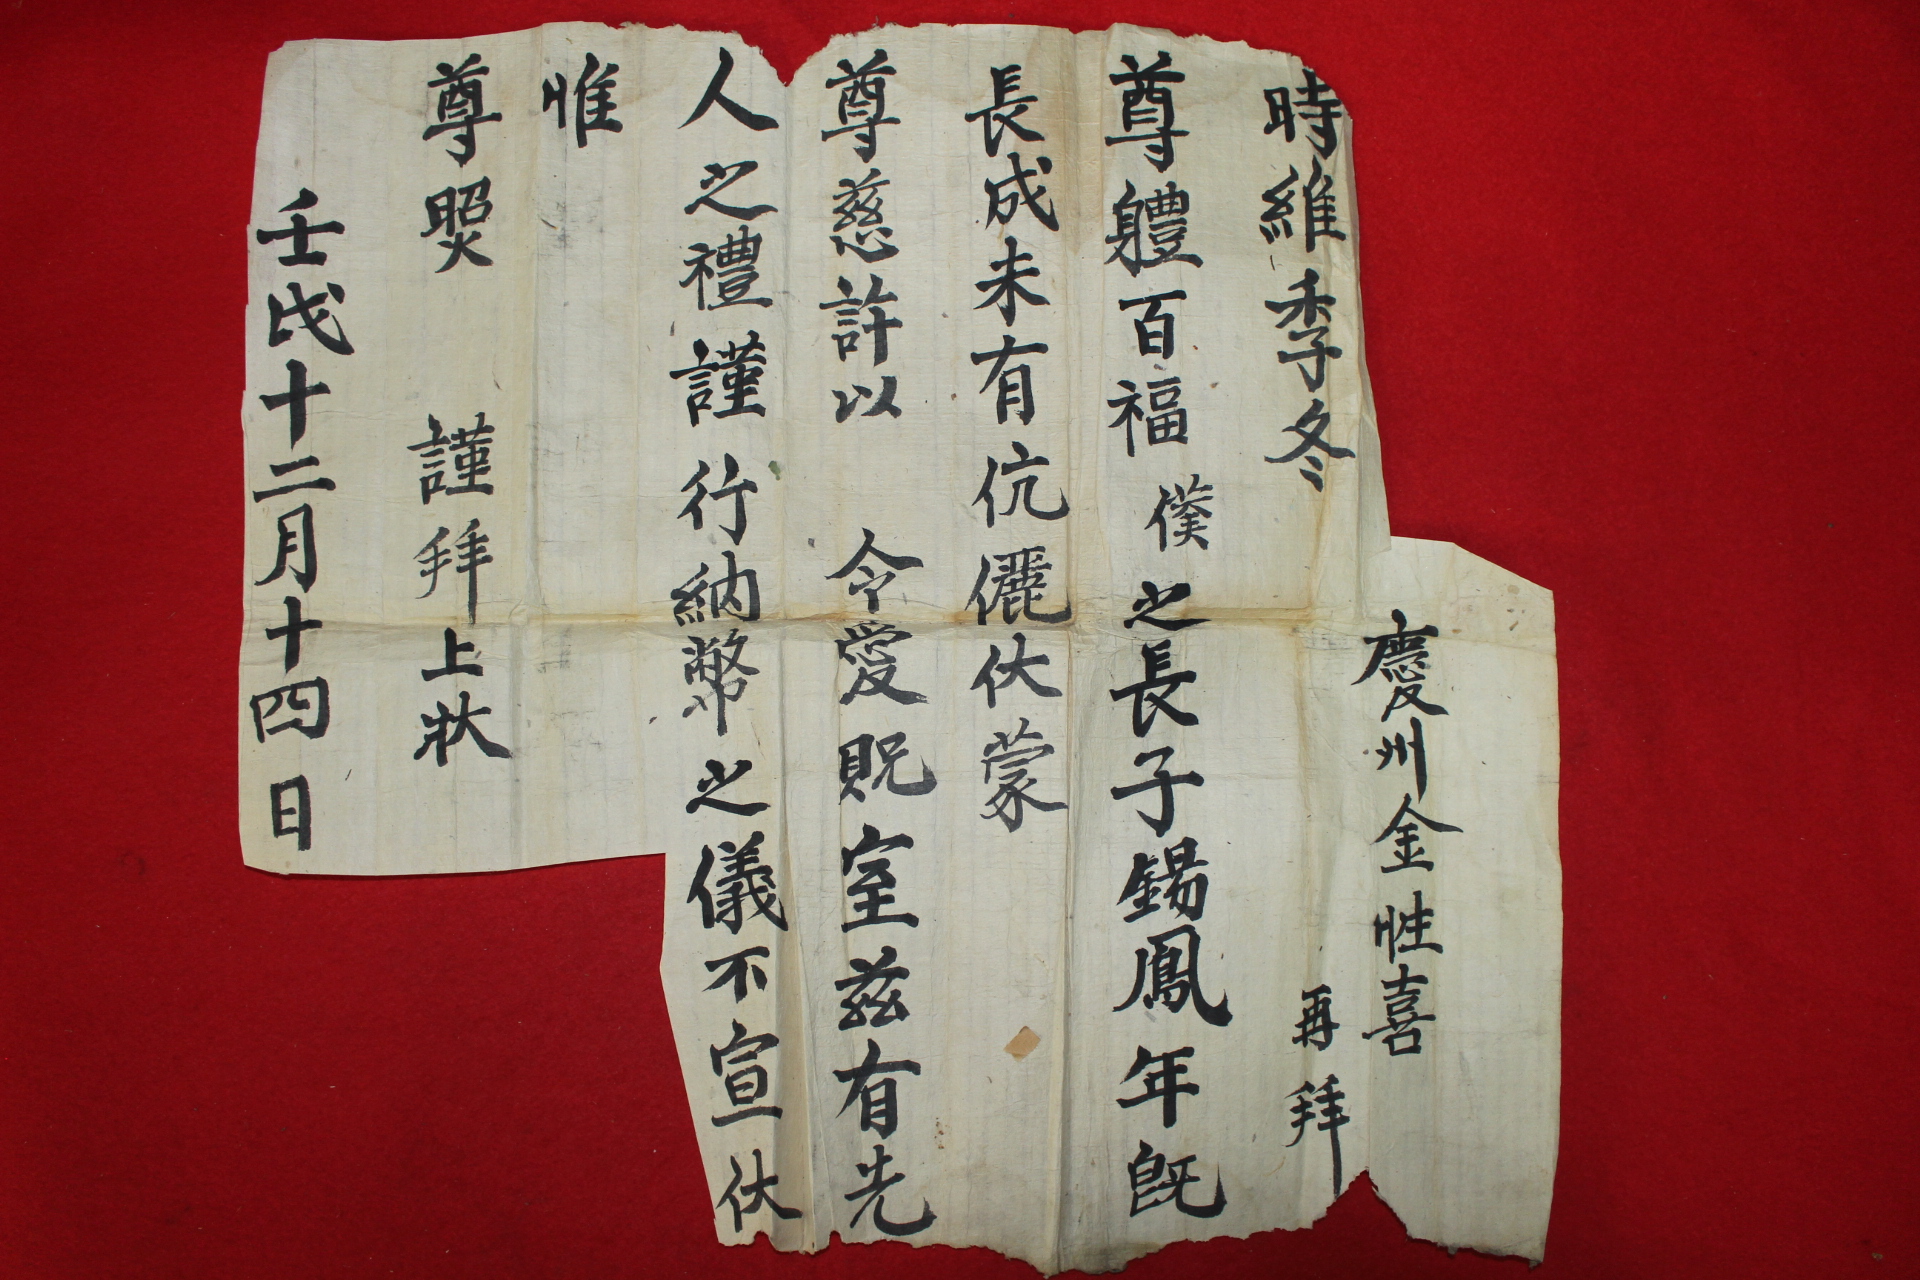 慶州金性喜
再拜
時維季冬
尊軆百福僕之長子錫鳳年旣
長成未有伉儷伏蒙
尊慈許以令愛貺室玆有先
人之禮謹行納幣之儀不宣伏
惟
尊照謹拜上狀
壬戌十二月十四日